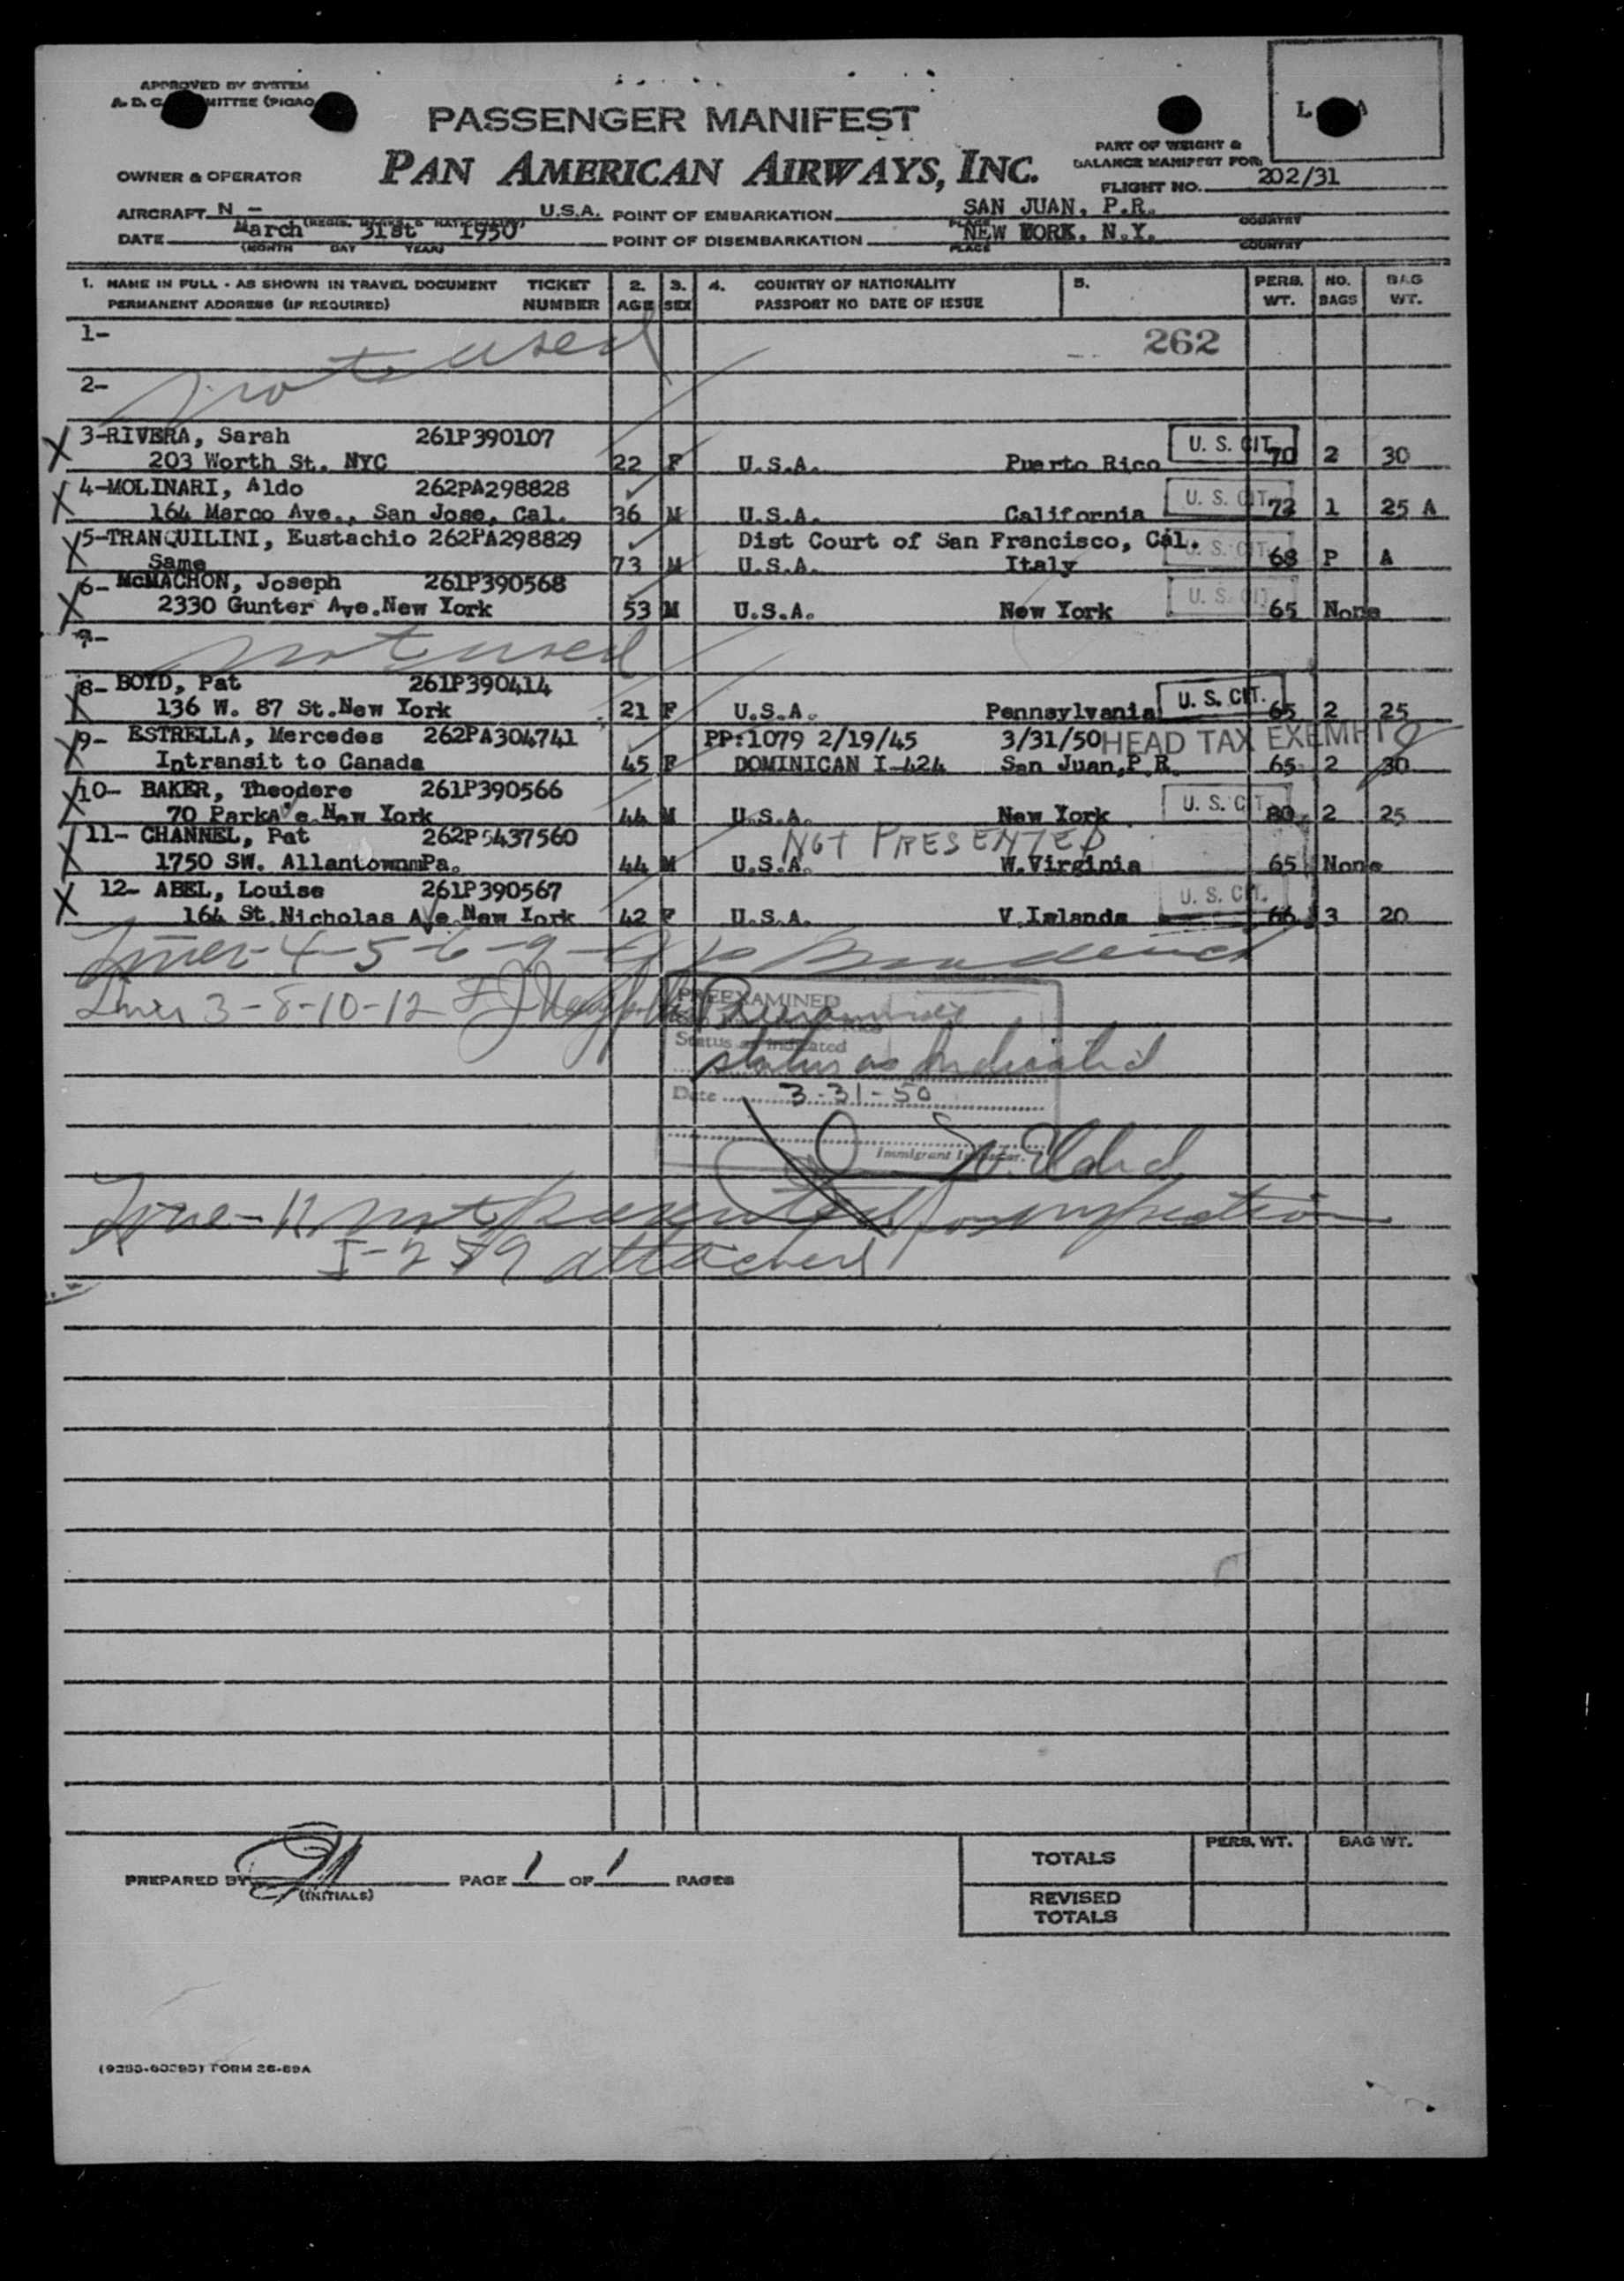 APPROVED BY SYSTEM
PASSENGER MANIFEST
PAN AMERICAN AIRWAYS, INC.
PART OF WEIGHT &
BALANCE MANIFEST FOR:
OWNER & OPERATOR
FLIGHT NO. 202/31
AIRCRAFT N - U.S.A. POINT OF EMBARKATION SAN JUAN, P.R.
PLACE COUNTRY
DATE March 31st 1950 POINT OF DISEMBARKATION NEW WORK. N.Y.
(MONTH DAY YEAR) PLACE COUNTRY
1. NAME IN FULL - AS SHOWN IN TRAVEL DOCUMENT TICKET 2. 3. 4. COUNTRY OF NATIONALITY 5. PERS. NO. BAG
PERMANENT ADDRESS (IF REQUIRED) NUMBER AGE SEX PASSPORT NO DATE OF ISSUE WT. BAGS WT.
1- not used 262
2-
3-RIVERA, Sarah 261P390107 U. S. CIT.
203 Worth St. NYC 22 F U.S.A. Puerto Rico 70 2 30
4-MOLINARI, Aldo 262PA298828 U. S. CIT.
164 Marco Ave., San Jose, Cal. 36 M U.S.A. California 72 1 25 A
5-TRANQUILINI, Eustachio 262PA298829 Dist Court of San Francisco, Cal. U. S. CIT.
Same 73 M U.S.A. Italy 68 P A
6- McMACHON, Joseph 261P390568 U. S. CIT.
2330 Gunter Ave.New York 53 M U.S.A. New York 65 None
7- not used
8- BOYD, Pat 261P390414 U. S. CIT.
136 W. 87 St.New York 21 F U.S.A. Pennsylvania 65 2 25
9- ESTRELLA, Mercedes 262PA304741 PP:1079 2/19/45 3/31/50 HEAD TAX EXEMPT
Intransit to Canada 45 F DOMINICAN I-424 San Juan,P.R. 65 2 30
10- BAKER, Theodore 261P390566 U. S. CIT.
70 ParkAve.New York 44 M U.S.A. New York 80 2 25
11- CHANNEL, Pat 262P5437560 NOT PRESENTED
1750 SW. AllantownmPa. 44 M U.S.A. W.Virginia 65 None
12- ABEL, Louise 261P390567 U. S. CIT.
164 St.Nicholas Ave.New York 42 F U.S.A. V.Islands 66 3 20
Lines-4-5-6-9-
Lines 3-8-10-12
PREEXAMINED
Status as Indicated
status as Indicated
Date 3-31-50
Immigrant Inspector.
Line-11 not presented for inspection
I-259 attached
PREPARED BY PAGE 1 OF 1 PAGES
(INITIALS)
PERS. WT. BAG WT.
TOTALS
REVISED
TOTALS